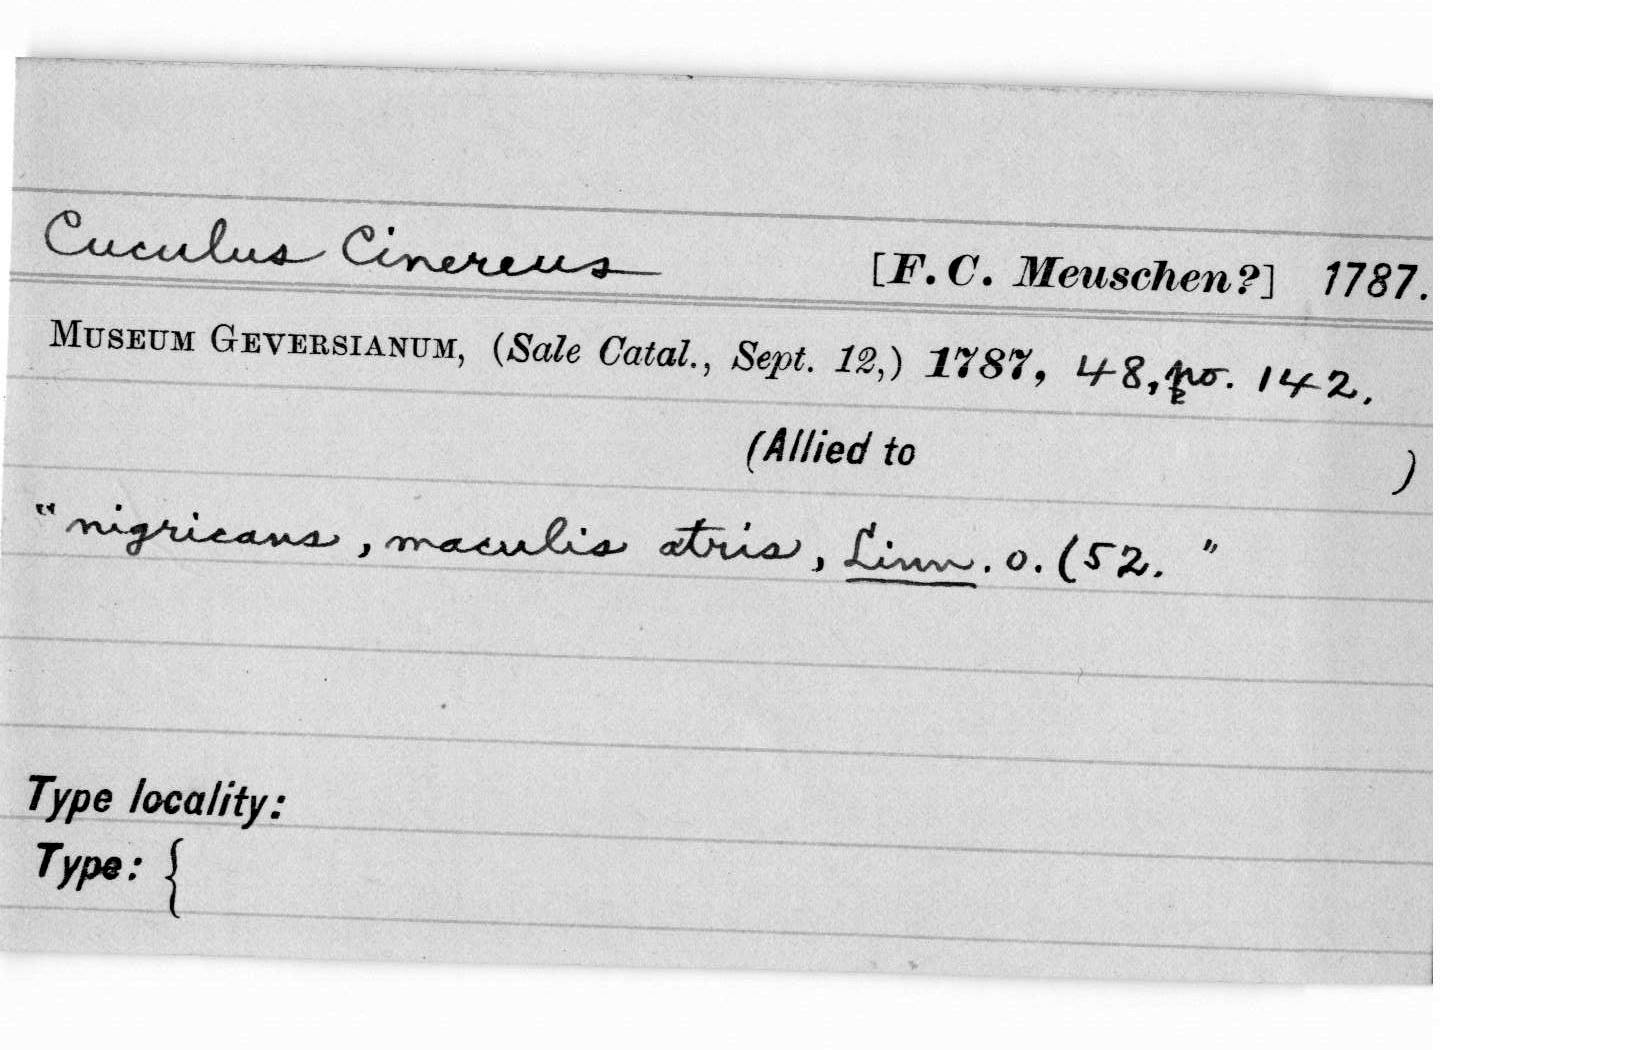 Cuculus Cinereus [F. C. Meuschen?] 1787.
MUSEUM GEVERSIANUM, (Sale Catal., Sept. 12,) 1787, 48, no. 142.
(Allied to )
"nigricans, maculis atris, Linn. o. (52. "
Type locality:
Type: {